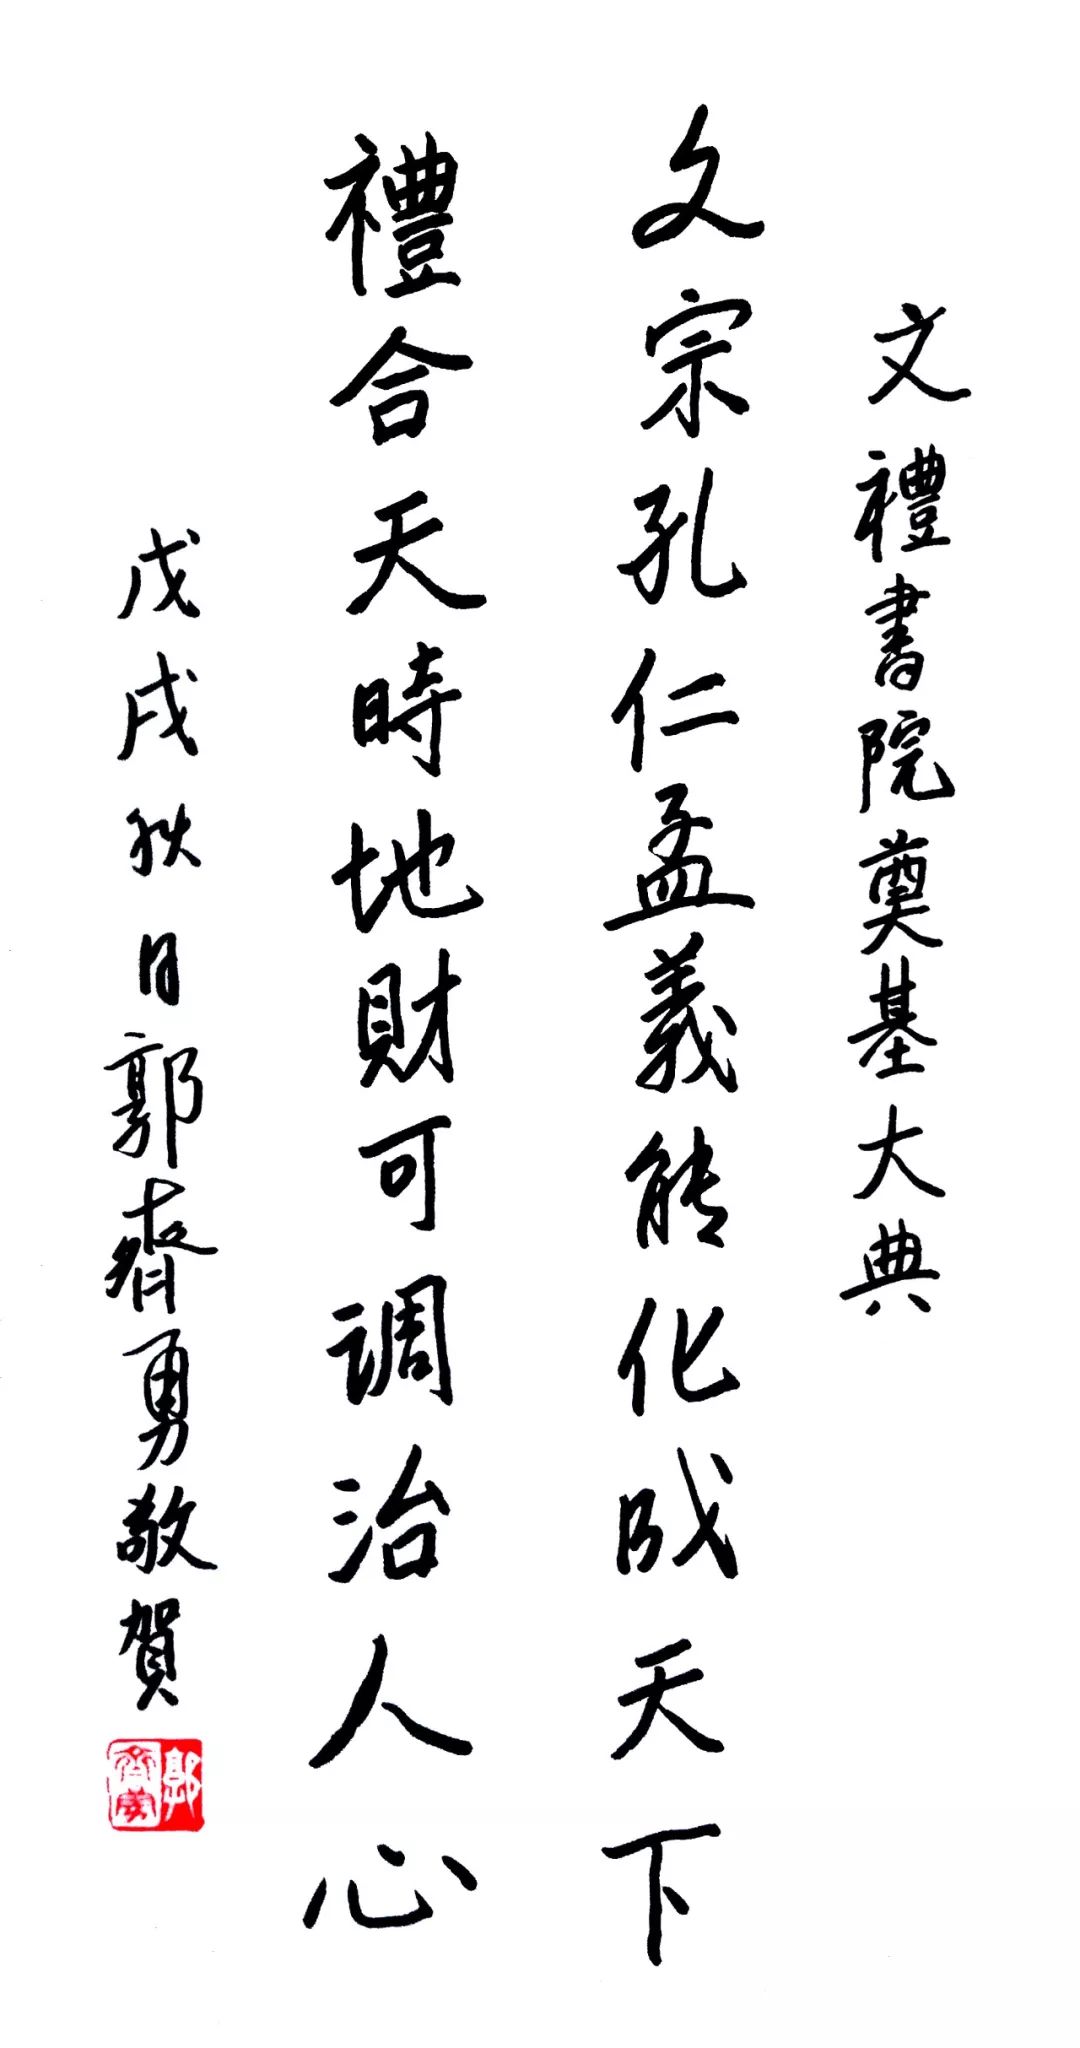 文禮書院奠基大典
文宗孔仁孟義能化成天下
禮合天時地財可调治人心
戊戌秋日郭齊勇敬賀
郭齊勇